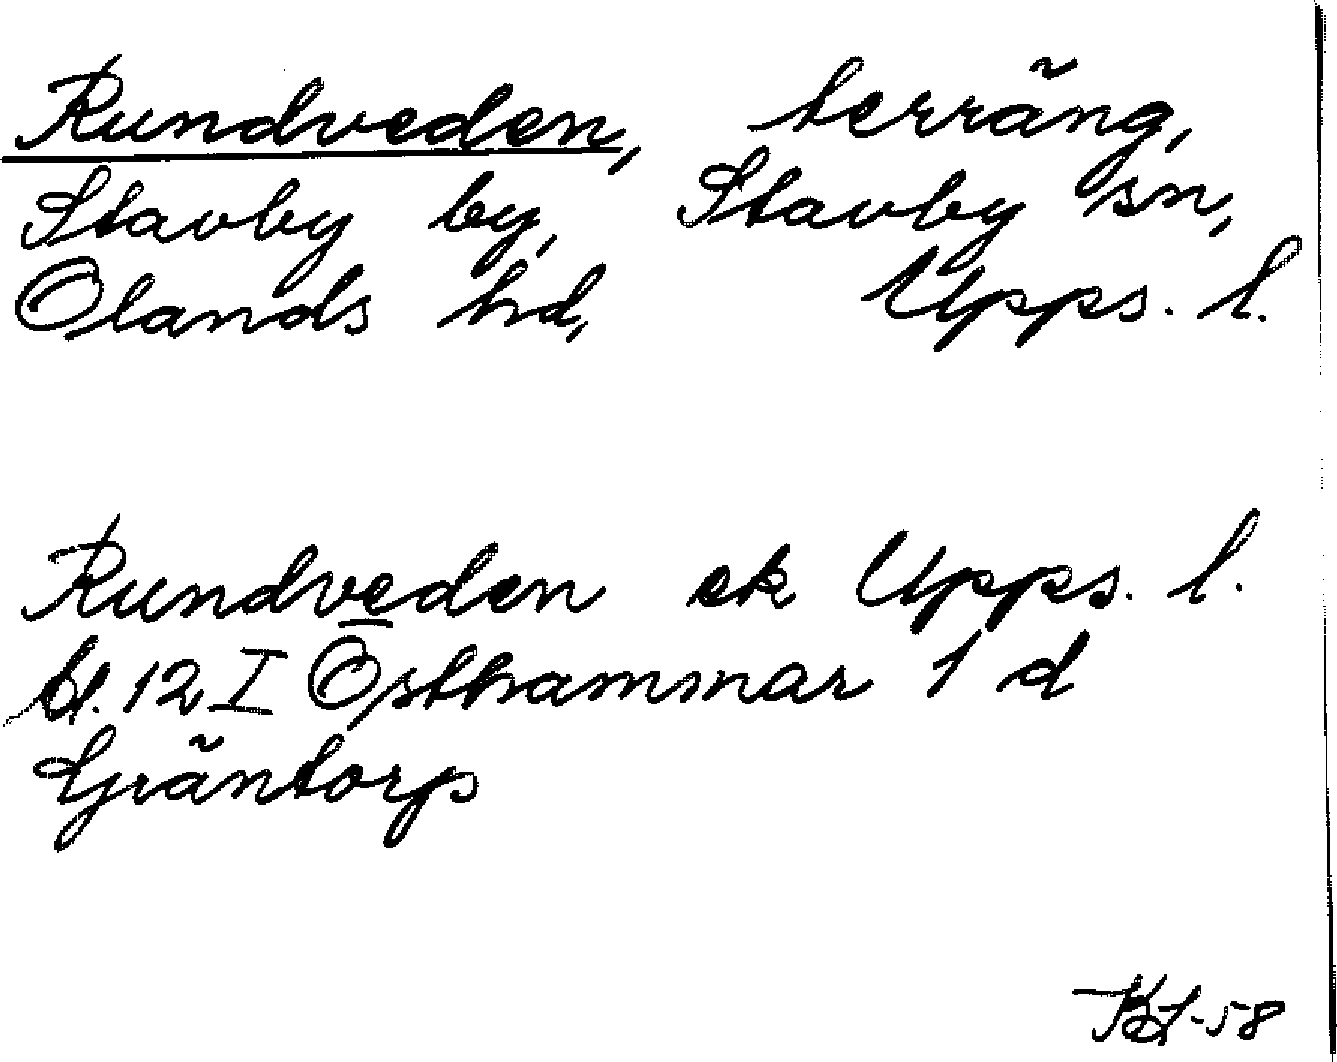 Rundveden, terräng,
Stavby by, Stavby sn,
Olands hd, Upps. l.
Rundveden ek Upps. l.
bl. 12 I Östhammar 1 d
Gräntorp